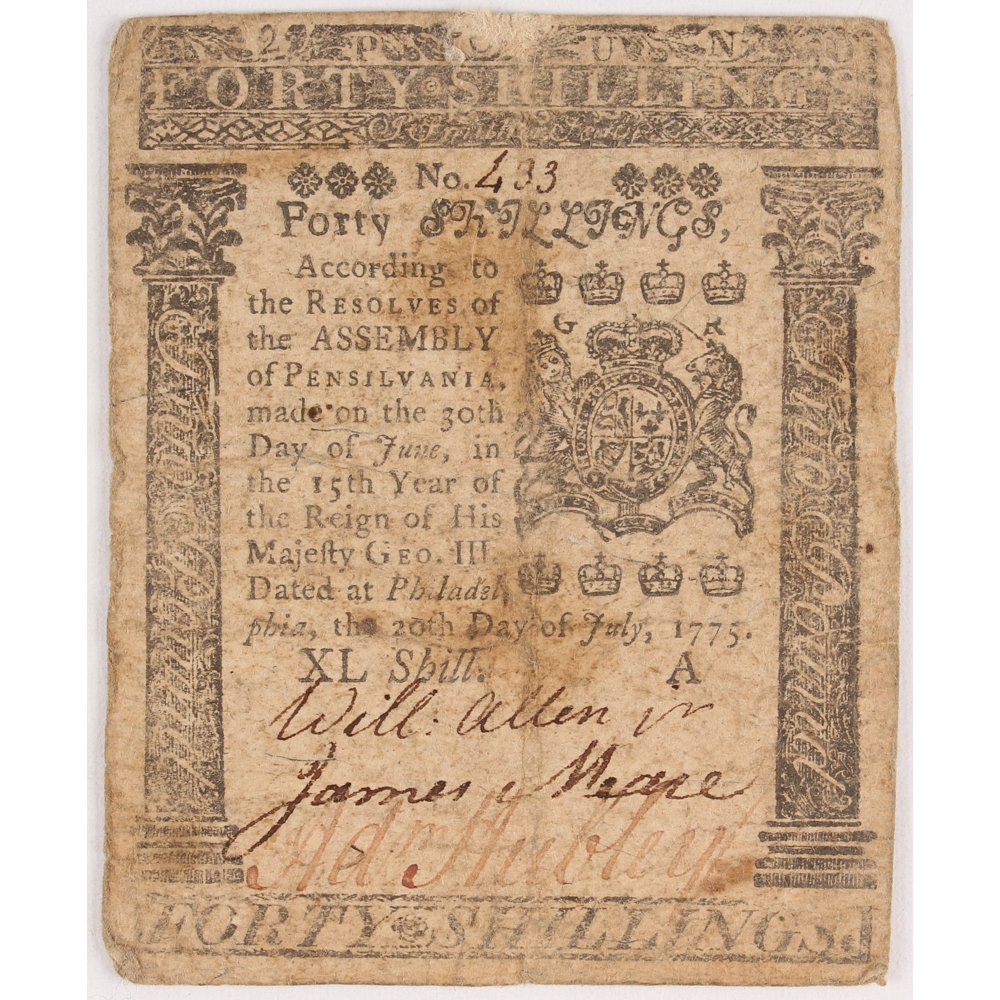 2 P O U N D
FORTY SHILLINGS
No. 433
Forty SHILLINGS,
According to
the RESOLVES of
the ASSEMBLY
of PENSILVANIA,
made on the 30th
Day of June, in
the 15th Year of
the Reign of His
Majesty GEO. III.
Dated at Philadel-
phia, the 20th Day of July, 1775.
G R
XL Shill. A
Will: Allen jr
James Mease
Adm Hubley
FORTY SHILLINGS.